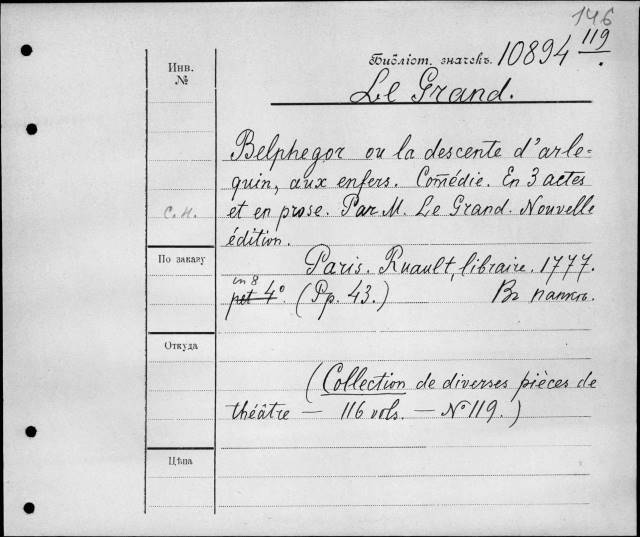 146
Библіот. значекъ. 10894 119
Инв.
№
Le Grand.
Belphegor ou la descente d'arle=
quin, aux enfers. Comédie. En 3 actes
с.н.
et en prose. Par M. Le Grand. Nouvelle
édition.
По заказу
Paris. Ruault, libraire. 1777.
in 8
pet 4º. (Pp. 43.) Въ папкѣ.
Откуда
(Collection de diverses pièces de
théâtre — 116 vols. — Nº 119.)
Цѣна